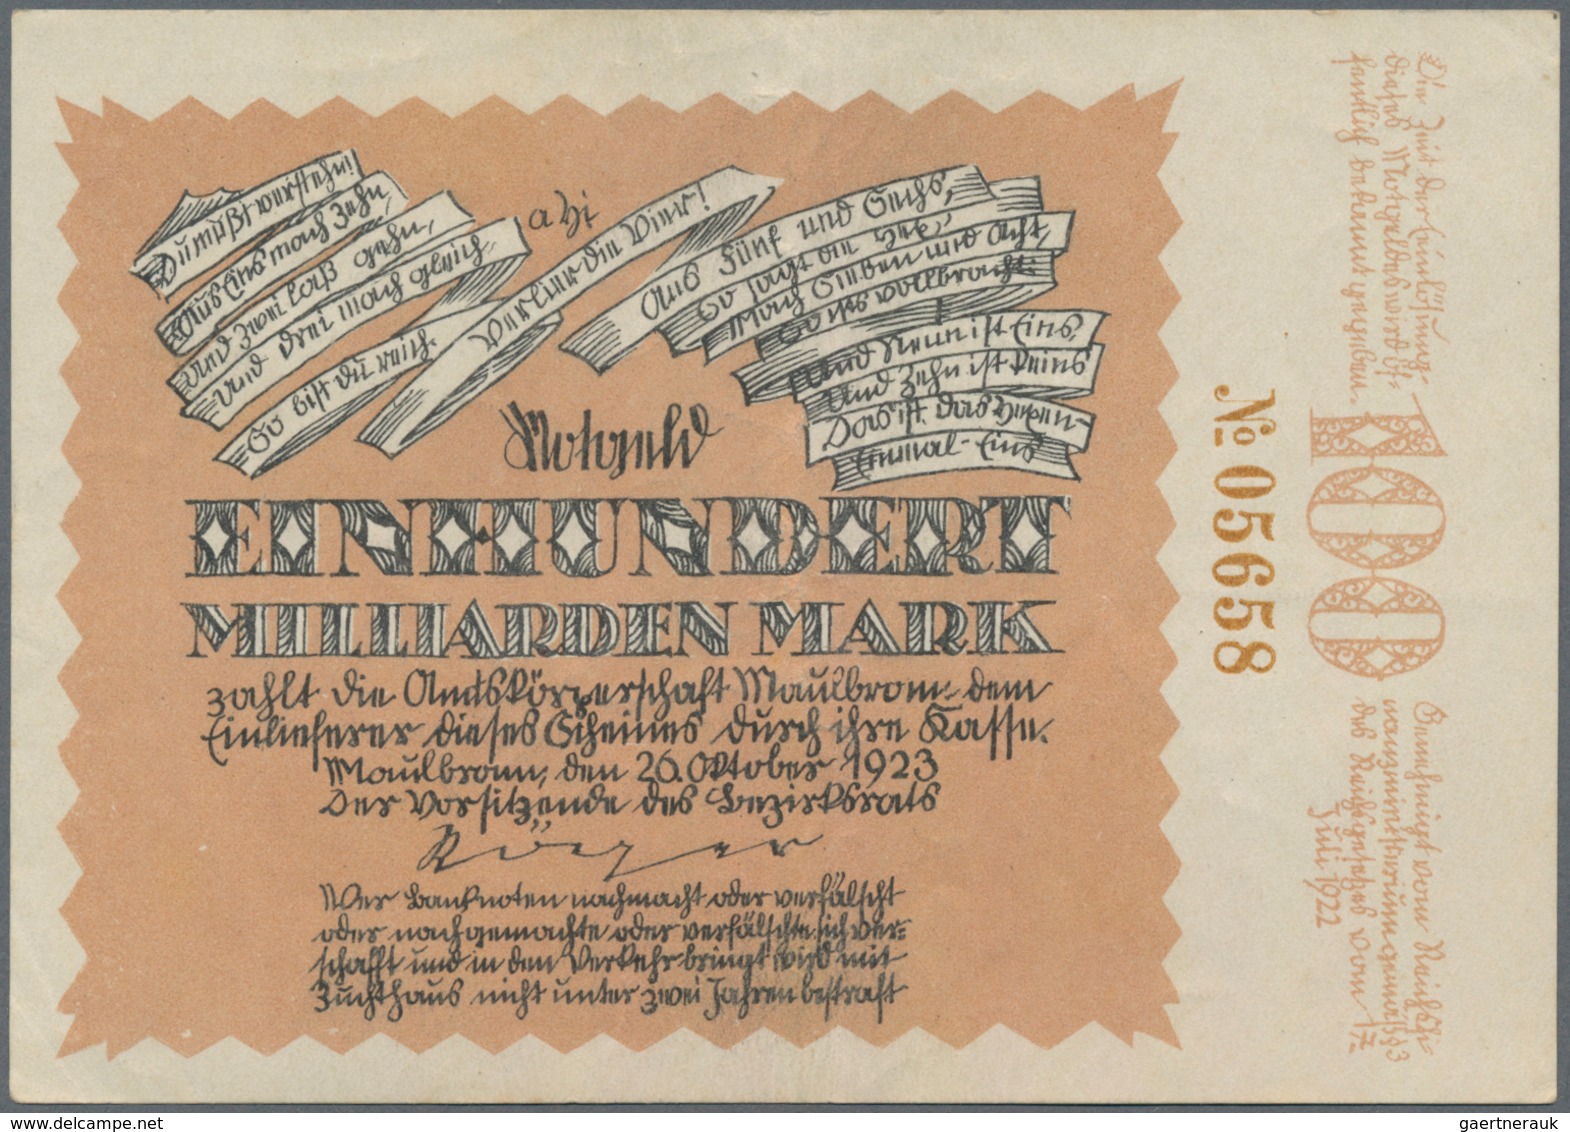 Du mußt verstehn!
Aus Eins mach Zehn,
Und Zwei laß gehn,
Und Drei mach gleich,
So bist du reich.
Verlier die Vier!
Aus Fünf und Sechs,
So sagt die Hex,
Mach Sieben und Acht,
So ists vollbracht:
Und Neun ist Eins,
Und Zehn ist keins
Das ist das Hexen-
Einmal-Eins
Notgeld
EINHUNDERT
MILLIARDEN MARK
zahlt die Amtskörperschaft Maulbronn dem
Einlieferer dieses Scheines durch ihre Kasse.
Maulbronn, den 26. Oktober 1923
Der Vorsitzende des Bezirksrats
Wer Banknoten nachmacht oder verfälscht
oder nachgemachte oder verfälschte sich ver-
schafft und in den Verkehr bringt wird mit
Zuchthaus nicht unter zwei Jahren bestraft
№ 05658
Die Zeit der Einlösung
dieses Notgeldes wird öf-
fentlich bekannt gegeben.
100
Genehmigt vom Reichsfi-
nanzministerium gemäß § 3
des Reichsgesetzes vom 17.
Juli 1922
www.delcampe.net
gaertnerauk